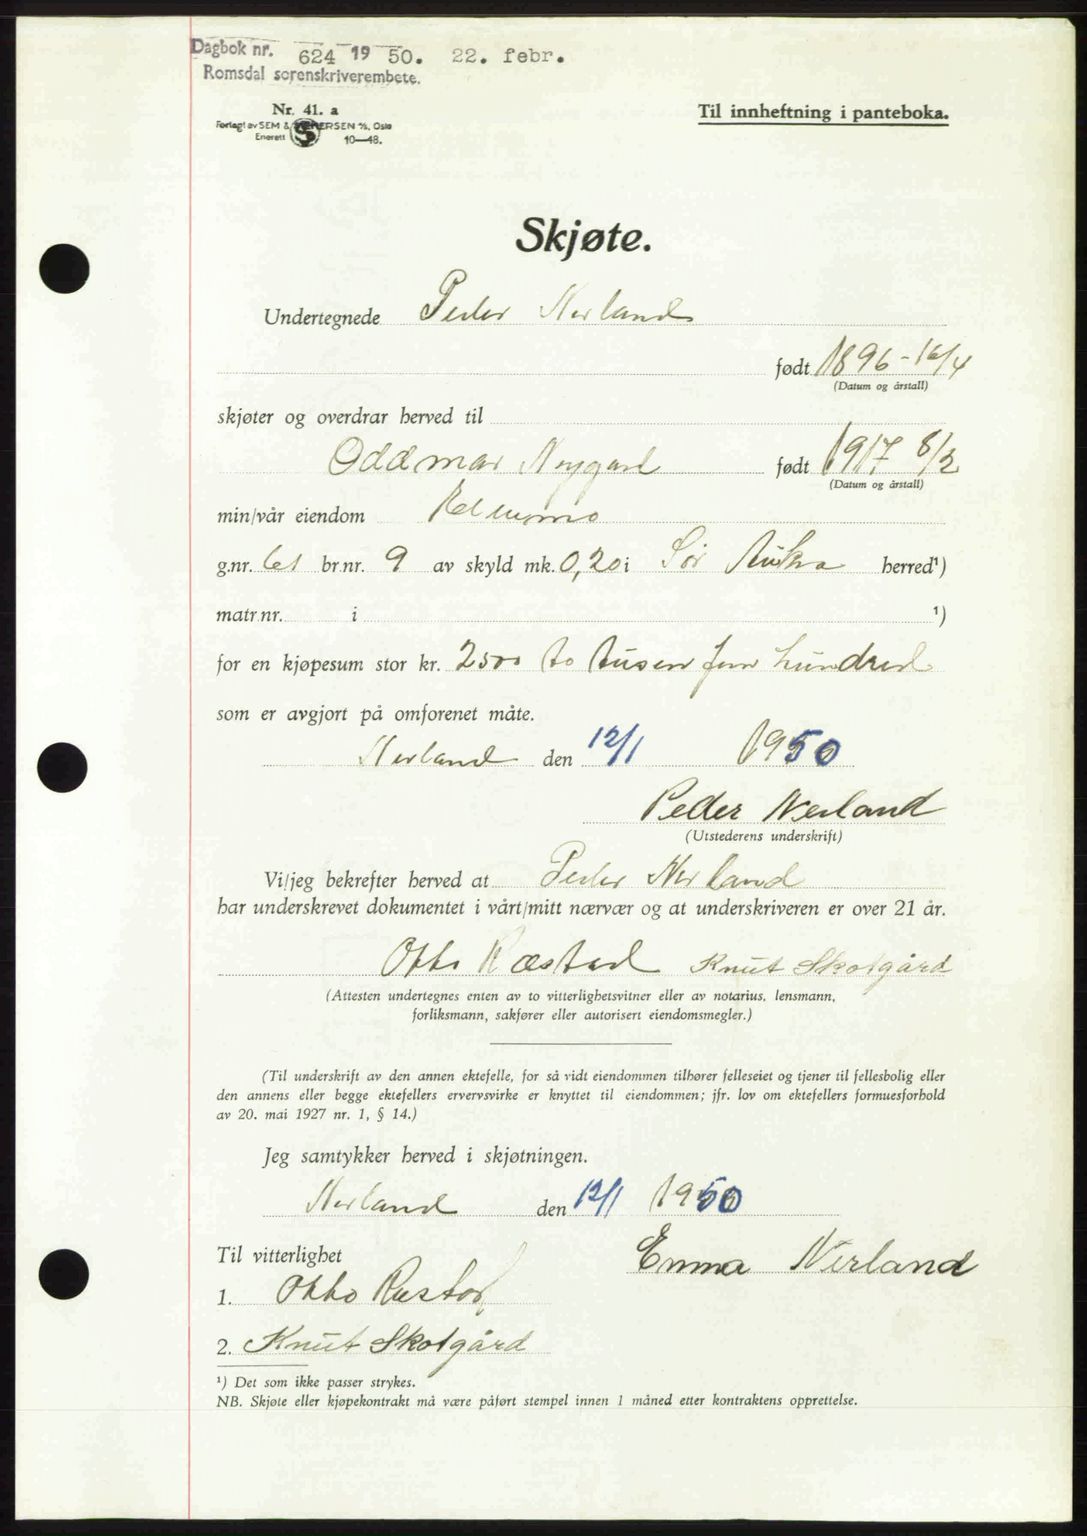 Dagbok nr. 624 19 50. 22. febr.
Romsdal sorenskriverembete.
Nr. 41. a
Til innheftning i panteboka.
Forlagt av SEM & STENERSEN A/S, Oslo
Enerett 10—48.
Skjøte.
Undertegnede Peder Nerland
født 1896 - 16/4
(Datum og årstall)
skjøter og overdrar herved til
Oddmar Nygard født 1917 8/2
(Datum og årstall)
min/vår eiendom
g.nr. 61 br.nr. 9 av skyld mk. 0,20 i Sør Aukra herred¹)
matr.nr. i ¹)
for en kjøpesum stor kr. 2500 to tusen fem hundred
som er avgjort på omforenet måte.
Nerland den 12/1 1950
Peder Nerland
(Utstederens underskrift)
Vi/jeg bekrefter herved at Peder Nerland
har underskrevet dokumentet i vårt/mitt nærvær og at underskriveren er over 21 år.
Otto Ræstad Knut Skotgård
(Attesten undertegnes enten av to vitterlighetsvitner eller av notarius, lensmann,
forliksmann, sakfører eller autorisert eiendomsmegler.)
(Til underskrift av den annen ektefelle, for så vidt eiendommen tilhører felleseiet og tjener til fellesbolig eller
den annens eller begge ektefellers ervervsvirke er knyttet til eiendommen; jfr. lov om ektefellers formuesforhold
av 20. mai 1927 nr. 1, § 14.)
Jeg samtykker herved i skjøtningen.
Nerland den 12/1 1950
Til vitterlighet Emma Nerland
1. Otto Ræstad
2. Knut Skotgård
¹) Det som ikke passer strykes.
NB. Skjøte eller kjøpekontrakt må være påført stempel innen 1 måned etter kontraktens opprettelse.